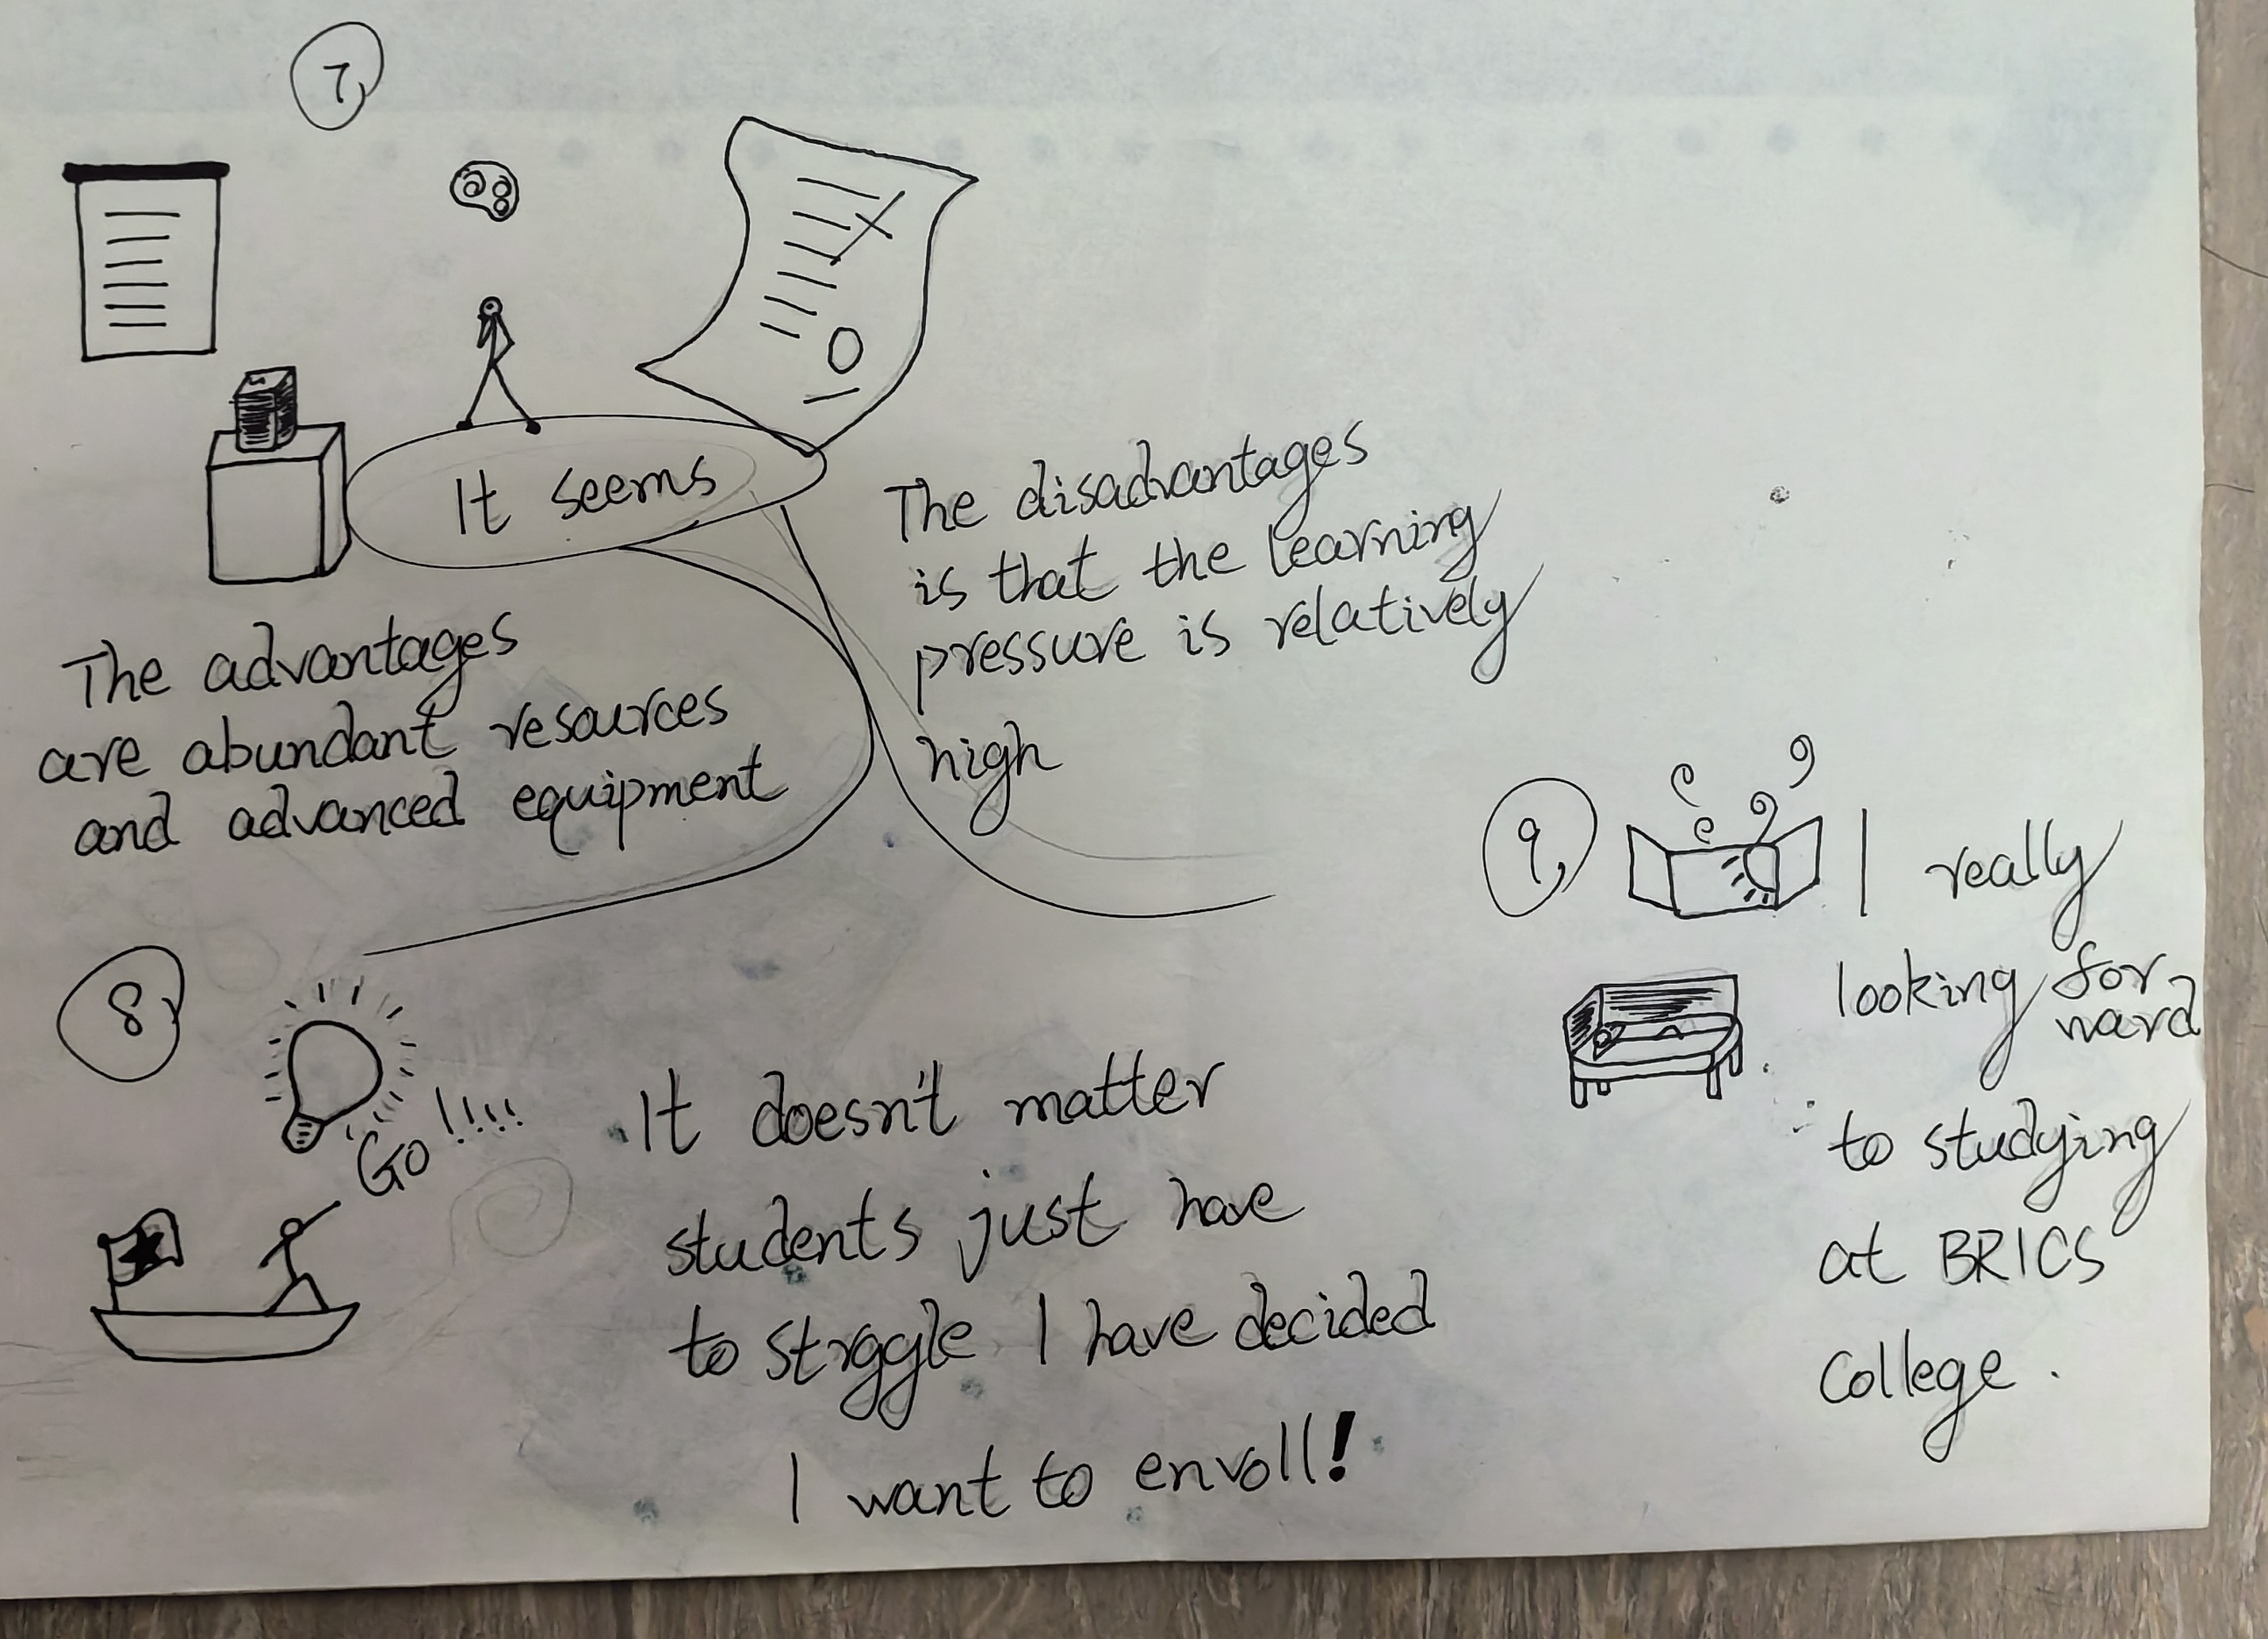 7,
It seems
The advantages
are abundant resources
and advanced equipment
The disadvantages
is that the learning
pressure is relatively
high
8,
Go!!!!
It doesn't matter
students just have
to strggle I have decided
I want to envoll!
9,
I really
looking for-
ward
to studying
at BRICS
College.